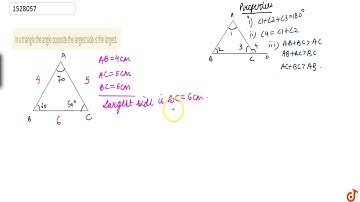 1528057
In a triangle the angle opposite the largest side is the largest.
A
70
4
5
60°
50°
B
6
C
AB=4cm
AC=5cm
BC=6cm
largest side is BC=6cm.
Properties
A
1
2
3
4
B
C
D
i) ∠1+∠2+∠3=180°
ii) ∠4=∠1+∠2
iii) AB+BC>AC
AB+AC>BC
AC+BC>AB